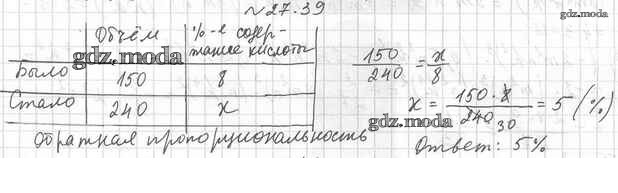 №27.39
gdz.moda
Объём %-е содержание кислоты
gdz.moda
Было 150 8
Стало 240 x
Обратная пропорциональность
150/240 = x/8
x = 150·8/240 30 = 5 (%)
gdz.moda
Ответ: 5%